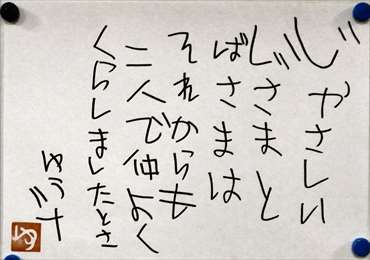 じやさしい
じさまと
ばさまは
それからも
二人で仲よく
くらしましたとさ
ゆ